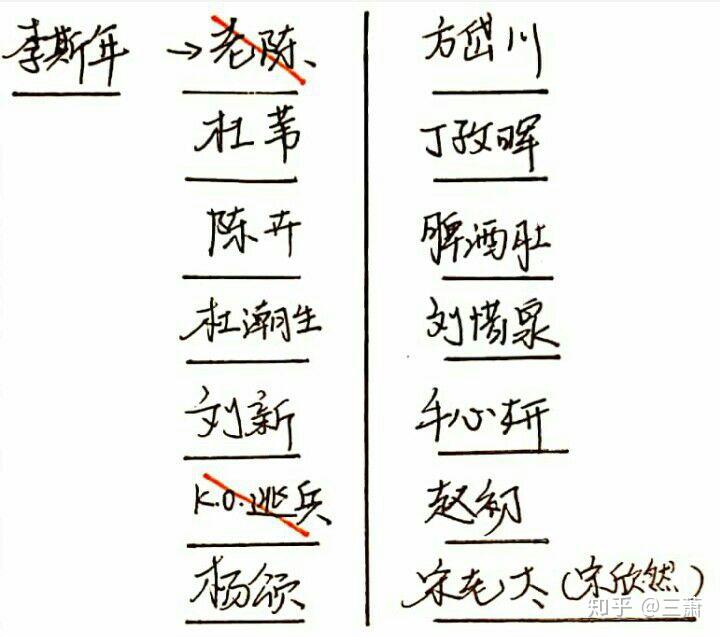 李斯年 →老陈、 方岱川
杜苇 丁孜晖
陈卉 啤酒肚
杜潮生 刘惜泉
刘新 牛心妍
K.O.逃兵 赵初
杨颂 宋老大(宋欣然)
知乎 @三萧